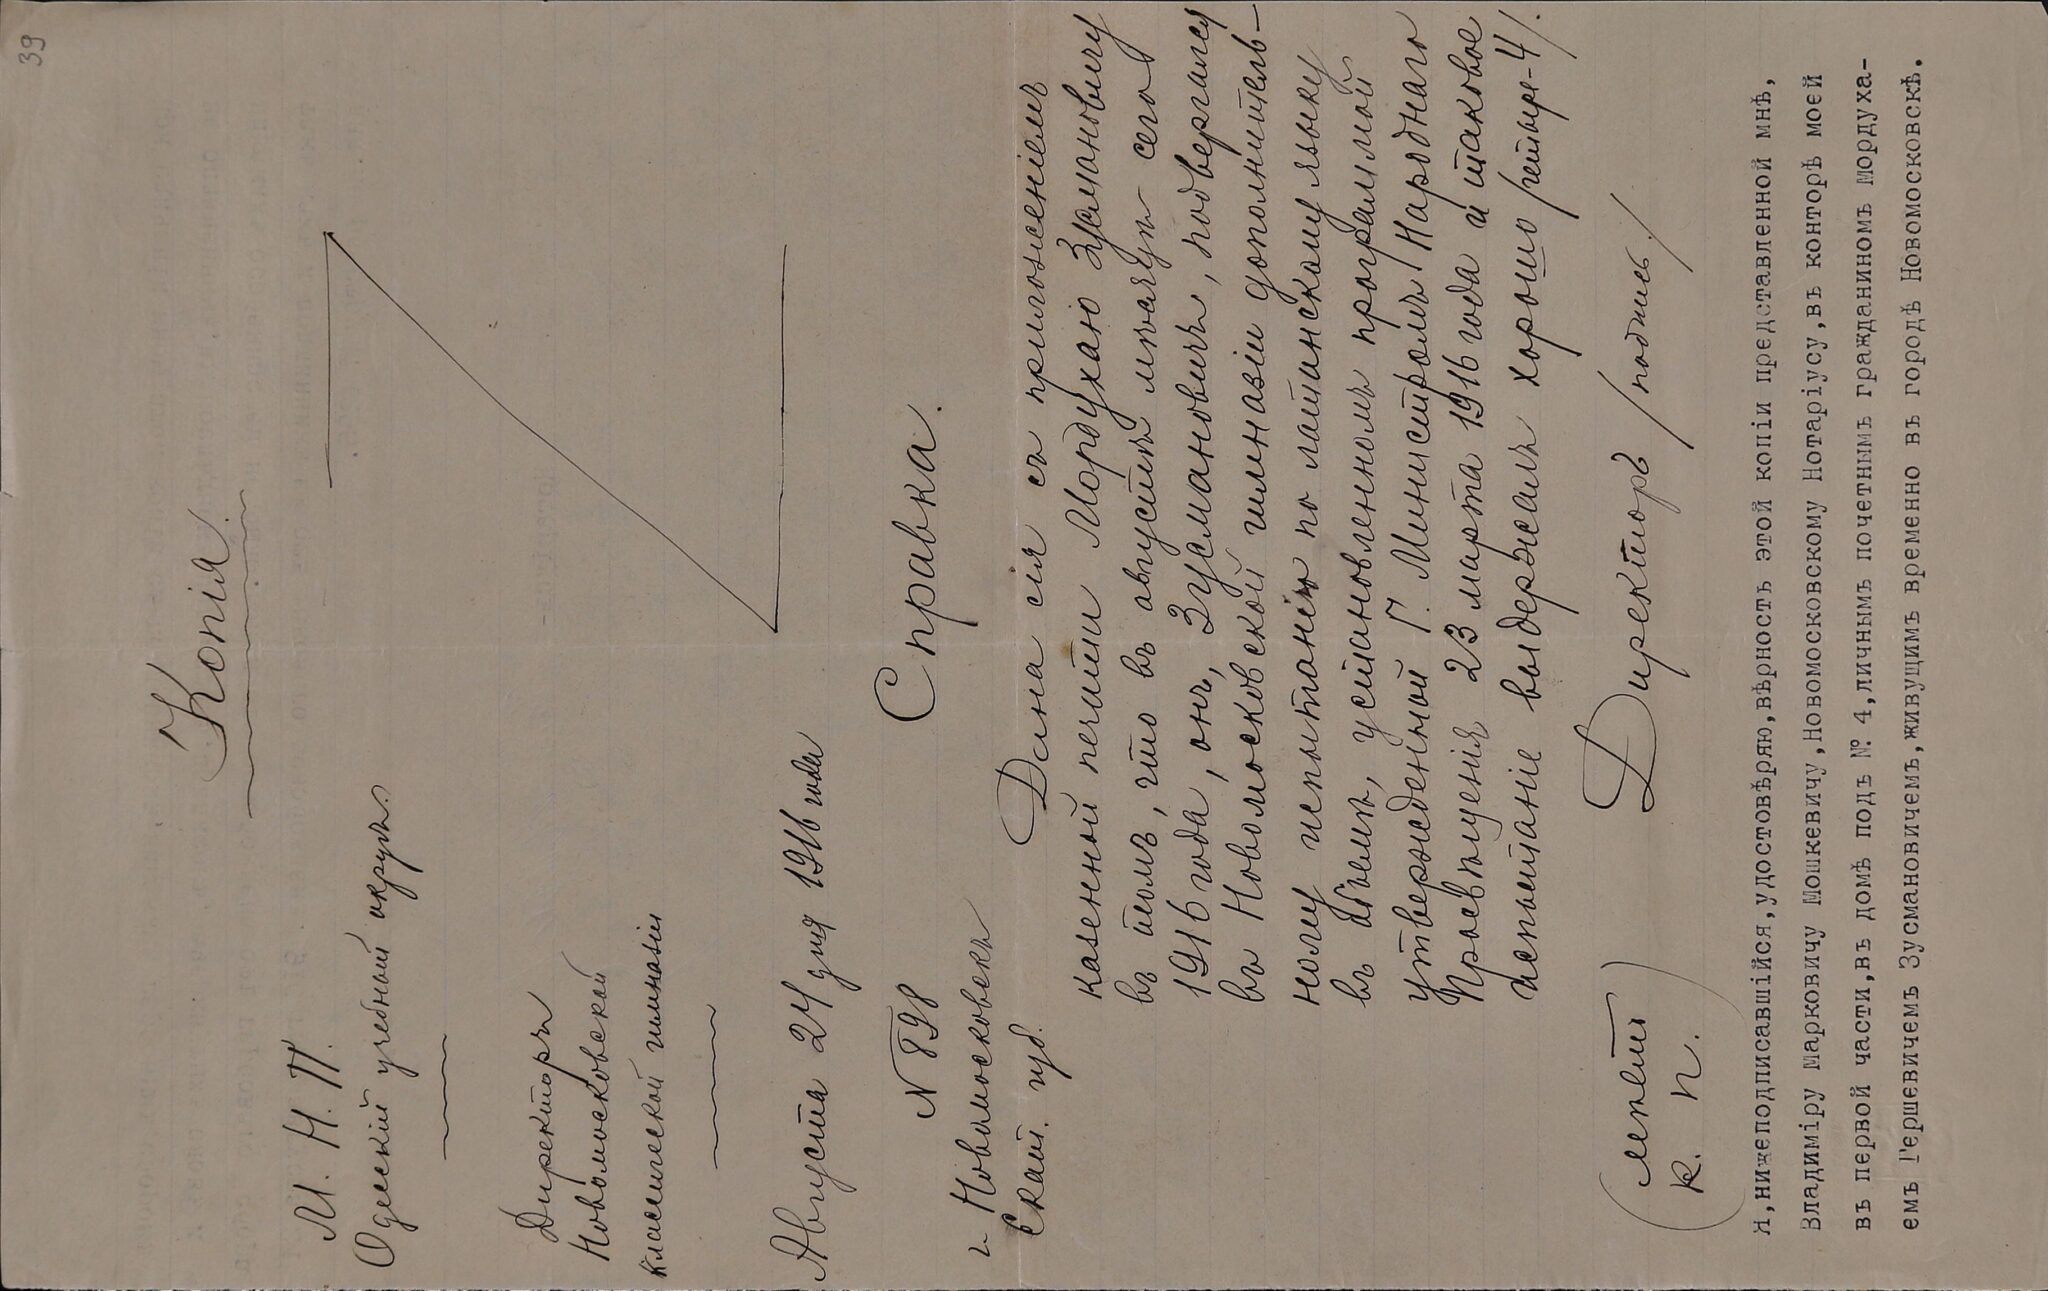 39
Копія.
М. Н. П.
Одесскій учебный округъ.
Директоръ
Новомосковской
классической гимназіи
Августа 24 дня 1916 года
N 898
г. Новомосковскъ
Екат. губ.
Справка.
Дана сія съ приложеніемъ
казенной печати Мордухаю Зусмановичу
въ томъ, что въ августѣ мѣсяцѣ сего
1916 года, онъ, Зусмановичъ, подвергался
въ Новомосковской гимназіи дополнитель-
ному испытанію по латинскому языку
въ объемѣ, установленномъ программой
утвержденной Г. Министромъ Народнаго
Просвѣщенія 23 марта 1916 года и таковое
испытаніе выдержалъ хорошо /четыре-4/.
Директоръ /подпись./
(мѣсто
к. п.)
Я,нижеподписавшійся,удостовѣряю,вѣрность этой копіи представленной мнѣ,
Владиміру Марковичу Мошкевичу,Новомосковскому Нотаріусу,въ конторѣ моей
въ первой части,въ домѣ подъ №. 4,личнымъ почетнымъ гражданиномъ Мордуха-
емъ Гершевичемъ Зусмановичемъ,живущимъ временно въ городѣ Новомосковскѣ.